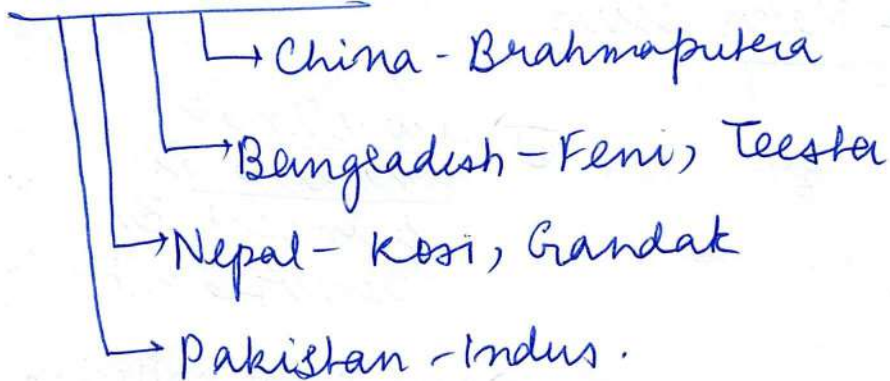 China - Brahmaputera
Bangladesh - Feni, Teesta
Nepal - Kosi, Gandak
Pakistan - Indus.